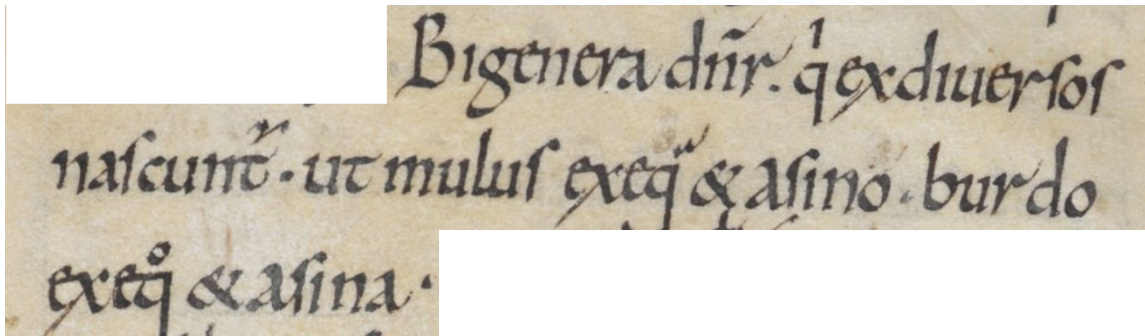 Bigenera dn̄r. qͥ ex diuersos
nascunt᷑. ut mulus ex eqᷓ & asino. burdo
ex eqͦ & asina.